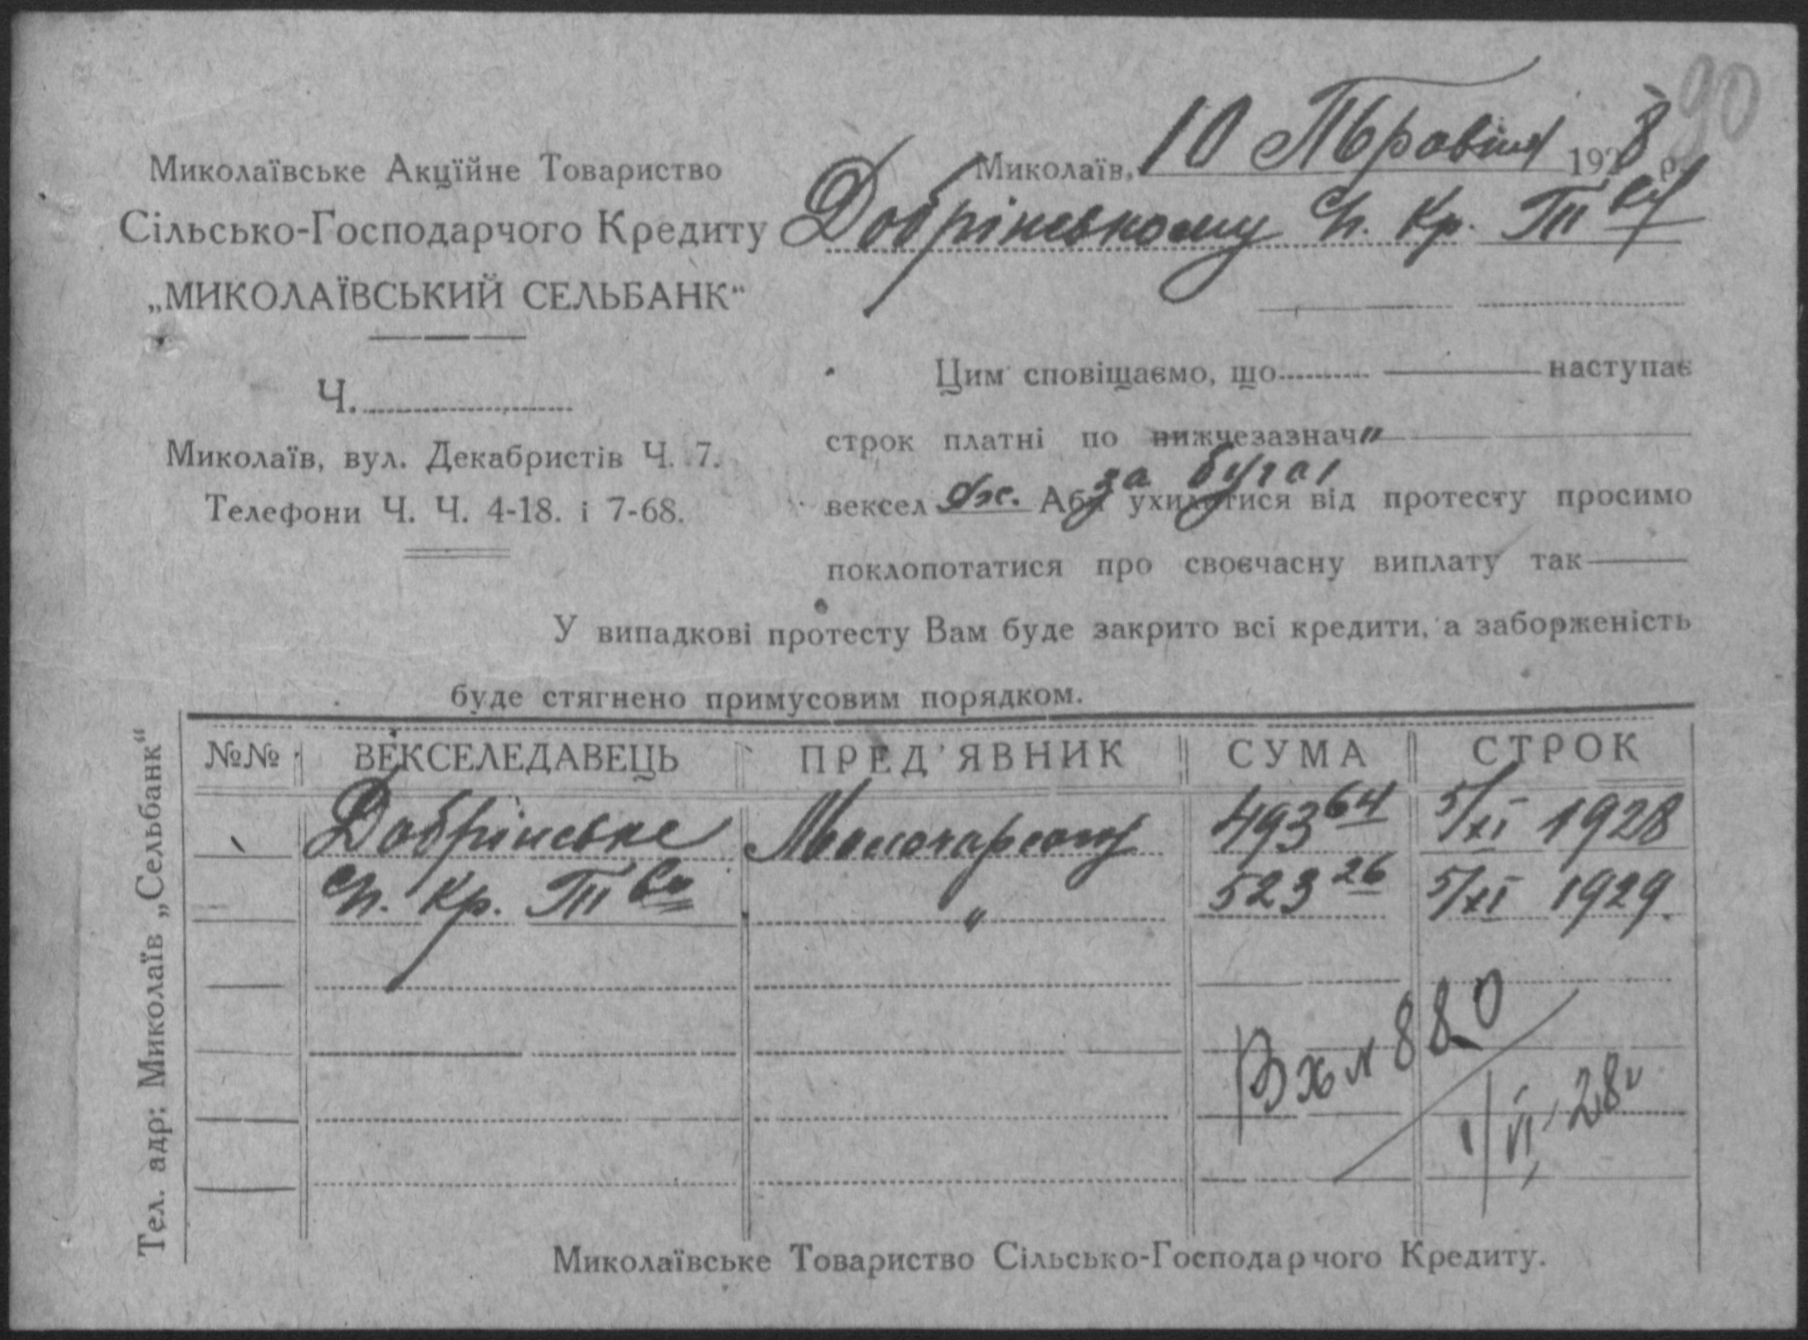 90
Миколаївське Акційне Товариство
Сільсько-Господарчого Кредиту
„МИКОЛАЇВСЬКИЙ СЕЛЬБАНК“
Ч.
Миколаїв, вул. Декабристів Ч. 7.
Телефони Ч. Ч. 4-18. і 7-68.
Миколаїв, 10 Травня 1928 р.
Добрінському Кр.
Цим сповіщаємо, що наступає
строк платні по нижчезазнач
вексел Аби ухилитися від протесту просимо
за бугаі
поклопотатися про своєчасну виплату так
У випадкові протесту Вам буде закрито всі кредити, а заборженість
буде стягнено примусовим порядком.
Тел. адр: Миколаїв „Сельбанк“
№№ ВЕКСЕЛЕДАВЕЦЬ ПРЕД'ЯВНИК СУМА СТРОК
Добрінське 493 64 5/XI 1928
Кр. Т во " 523 26 5/XI 1929.
Вх N 880
1/VI 28
Миколаївське Товариство Сільсько-Господарчого Кредиту.